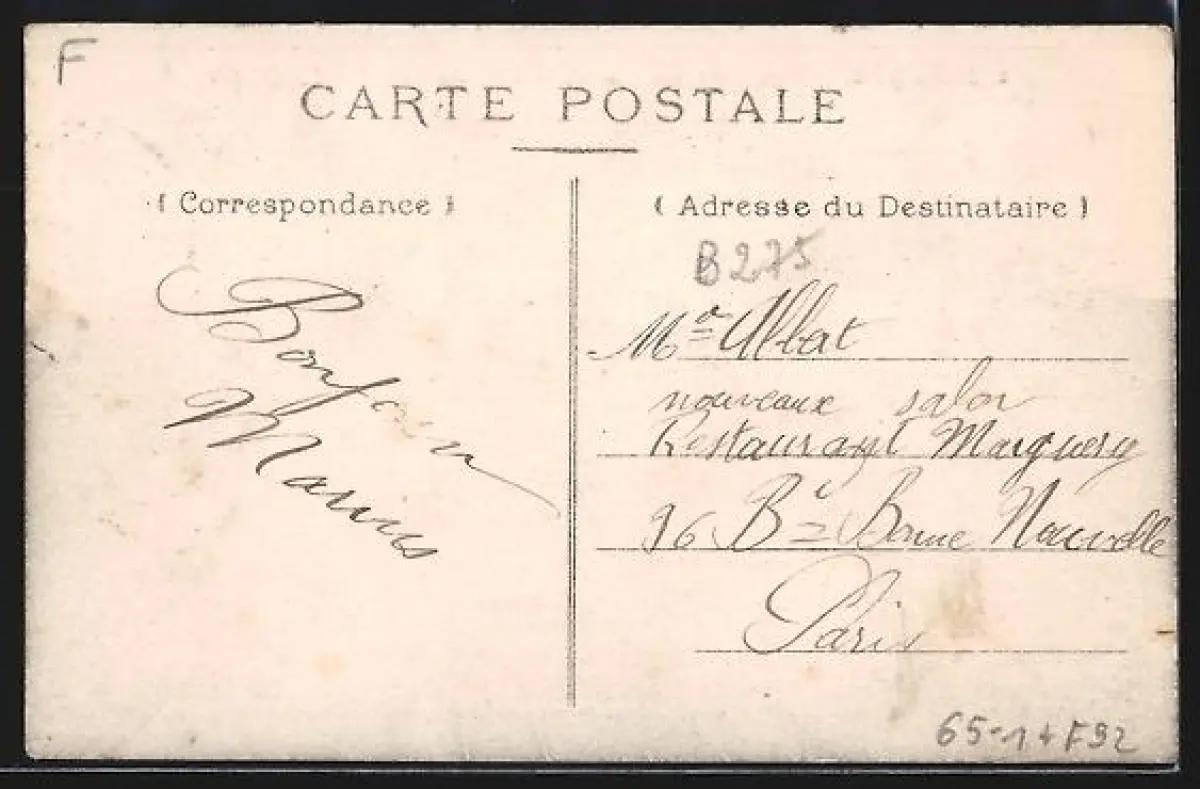 F
CARTE POSTALE
( Correspondance )
( Adresse du Destinataire )
B275
Bonjour
Marius
nouveaux salon
Restaurant Marguery
36 Bd Bonne Nouvelle
Paris
65-1+F92